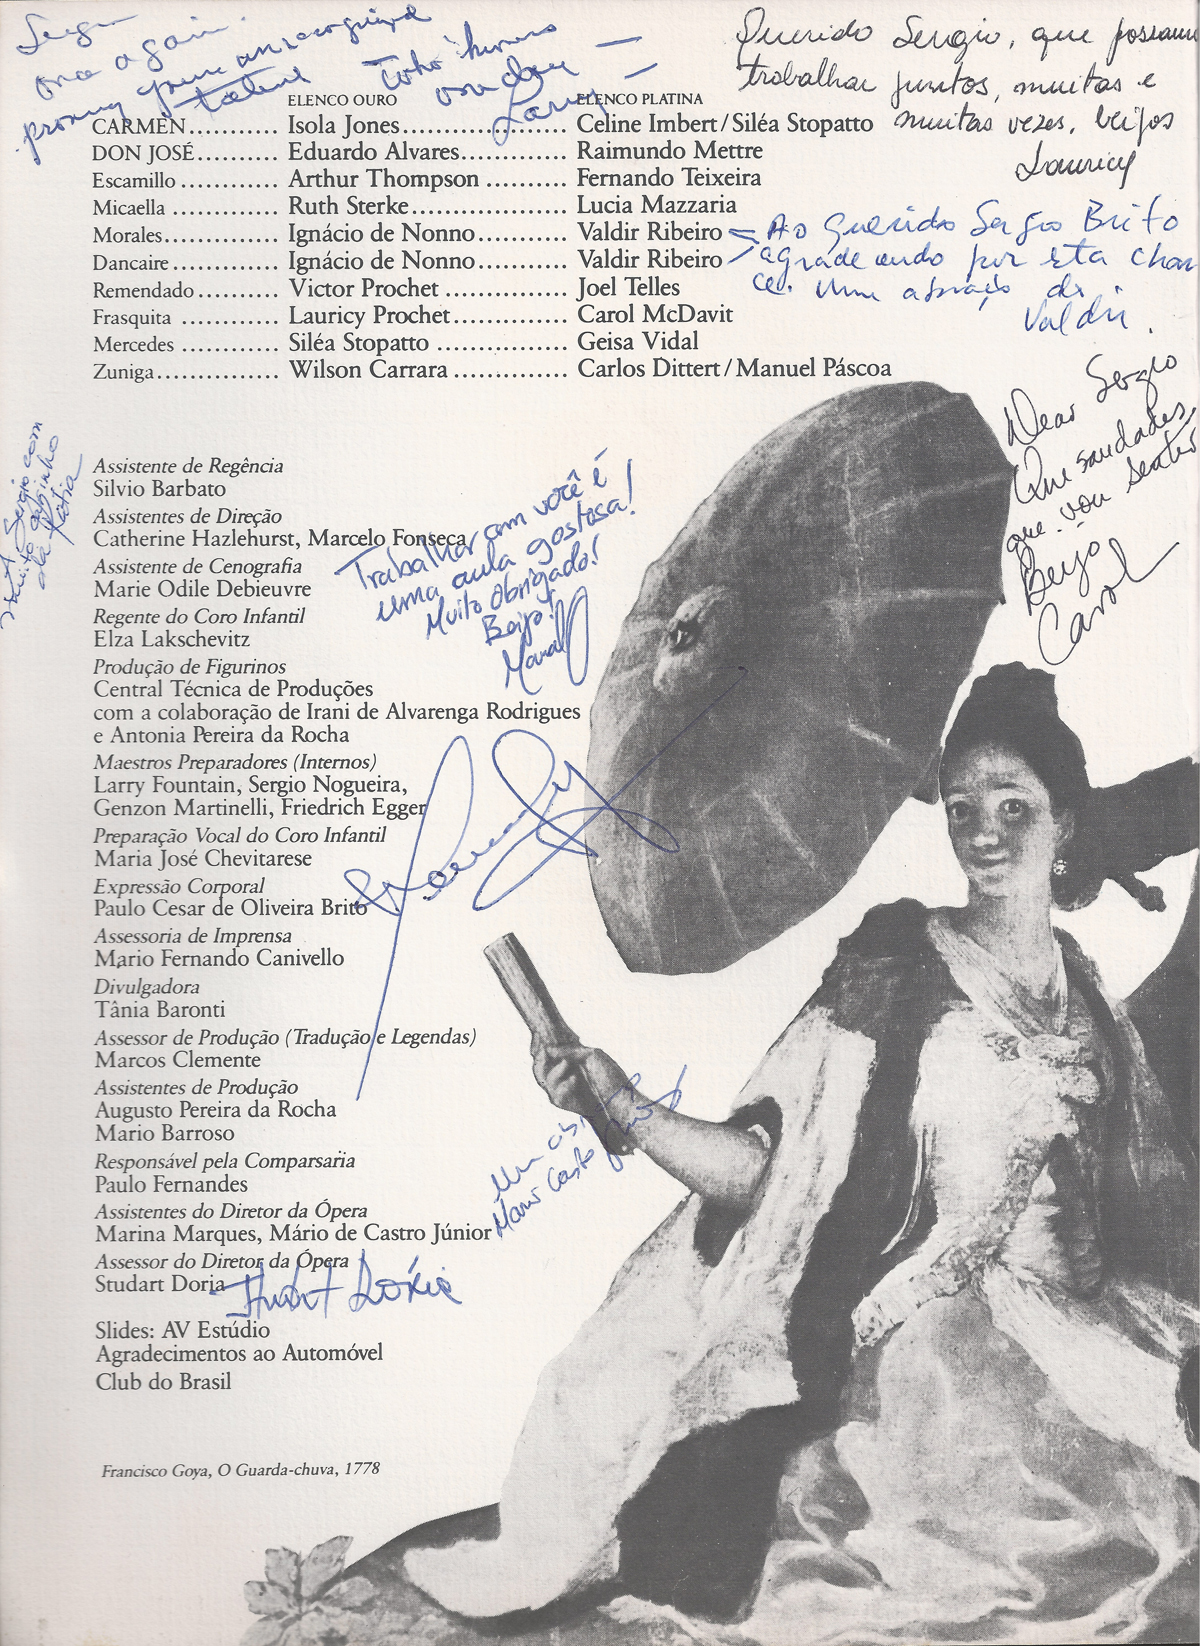 Sergio
once again
proving your unrecognized
talent
Larry
Querido Sergio, que possamos
trabalhar juntos, muitas e
muitas vezes, beijos
Lauricy
ELENCO OURO ELENCO PLATINA
CARMEN.......... Isola Jones.................... Celine Imbert/Siléa Stopatto
DON JOSÉ.......... Eduardo Alvares............. Raimundo Mettre
Escamillo ............. Arthur Thompson .......... Fernando Teixeira
Micaella ............. Ruth Sterke................... Lucia Mazzaria
Morales.............. Ignácio de Nonno........... Valdir Ribeiro
Dancaire............. Ignácio de Nonno........... Valdir Ribeiro
Remendado.......... Victor Prochet ................ Joel Telles
Frasquita ............ Lauricy Prochet.............. Carol McDavit
Mercedes ............ Siléa Stopatto ................. Geisa Vidal
Zuniga............... Wilson Carrara .............. Carlos Dittert/Manuel Páscoa
Ao querido Sergio Brito
agradecendo por esta chan
ce. Um abraço do
Valdir.
Dear Sergio
Que saudades
que vou sentir
Beijo
Carol
A Sergio com
muito carinho
da Kátia
Assistente de Regência
Silvio Barbato
Assistentes de Direção
Catherine Hazlehurst, Marcelo Fonseca
Assistente de Cenografia
Marie Odile Debieuvre
Regente do Coro Infantil
Elza Lakschevitz
Produção de Figurinos
Central Técnica de Produções
com a colaboração de Irani de Alvarenga Rodrigues
e Antonia Pereira da Rocha
Maestros Preparadores (Internos)
Larry Fountain, Sergio Nogueira,
Genzon Martinelli, Friedrich Egger
Preparação Vocal do Coro Infantil
Maria José Chevitarese
Expressão Corporal
Paulo Cesar de Oliveira Brito
Assessoria de Imprensa
Mario Fernando Canivello
Divulgadora
Tânia Baronti
Assessor de Produção (Tradução e Legendas)
Marcos Clemente
Assistentes de Produção
Augusto Pereira da Rocha
Mario Barroso
Responsável pela Comparsaria
Paulo Fernandes
Assistentes do Diretor da Ópera
Marina Marques, Mário de Castro Júnior
Assessor do Diretor da Ópera
Studart Doria
Trabalhar com você é
uma aula gostosa!
Muito obrigado!
Beijo!
Mario Castro
Studart Dória
Slides: AV Estúdio
Agradecimentos ao Automóvel
Club do Brasil
Francisco Goya, O Guarda-chuva, 1778